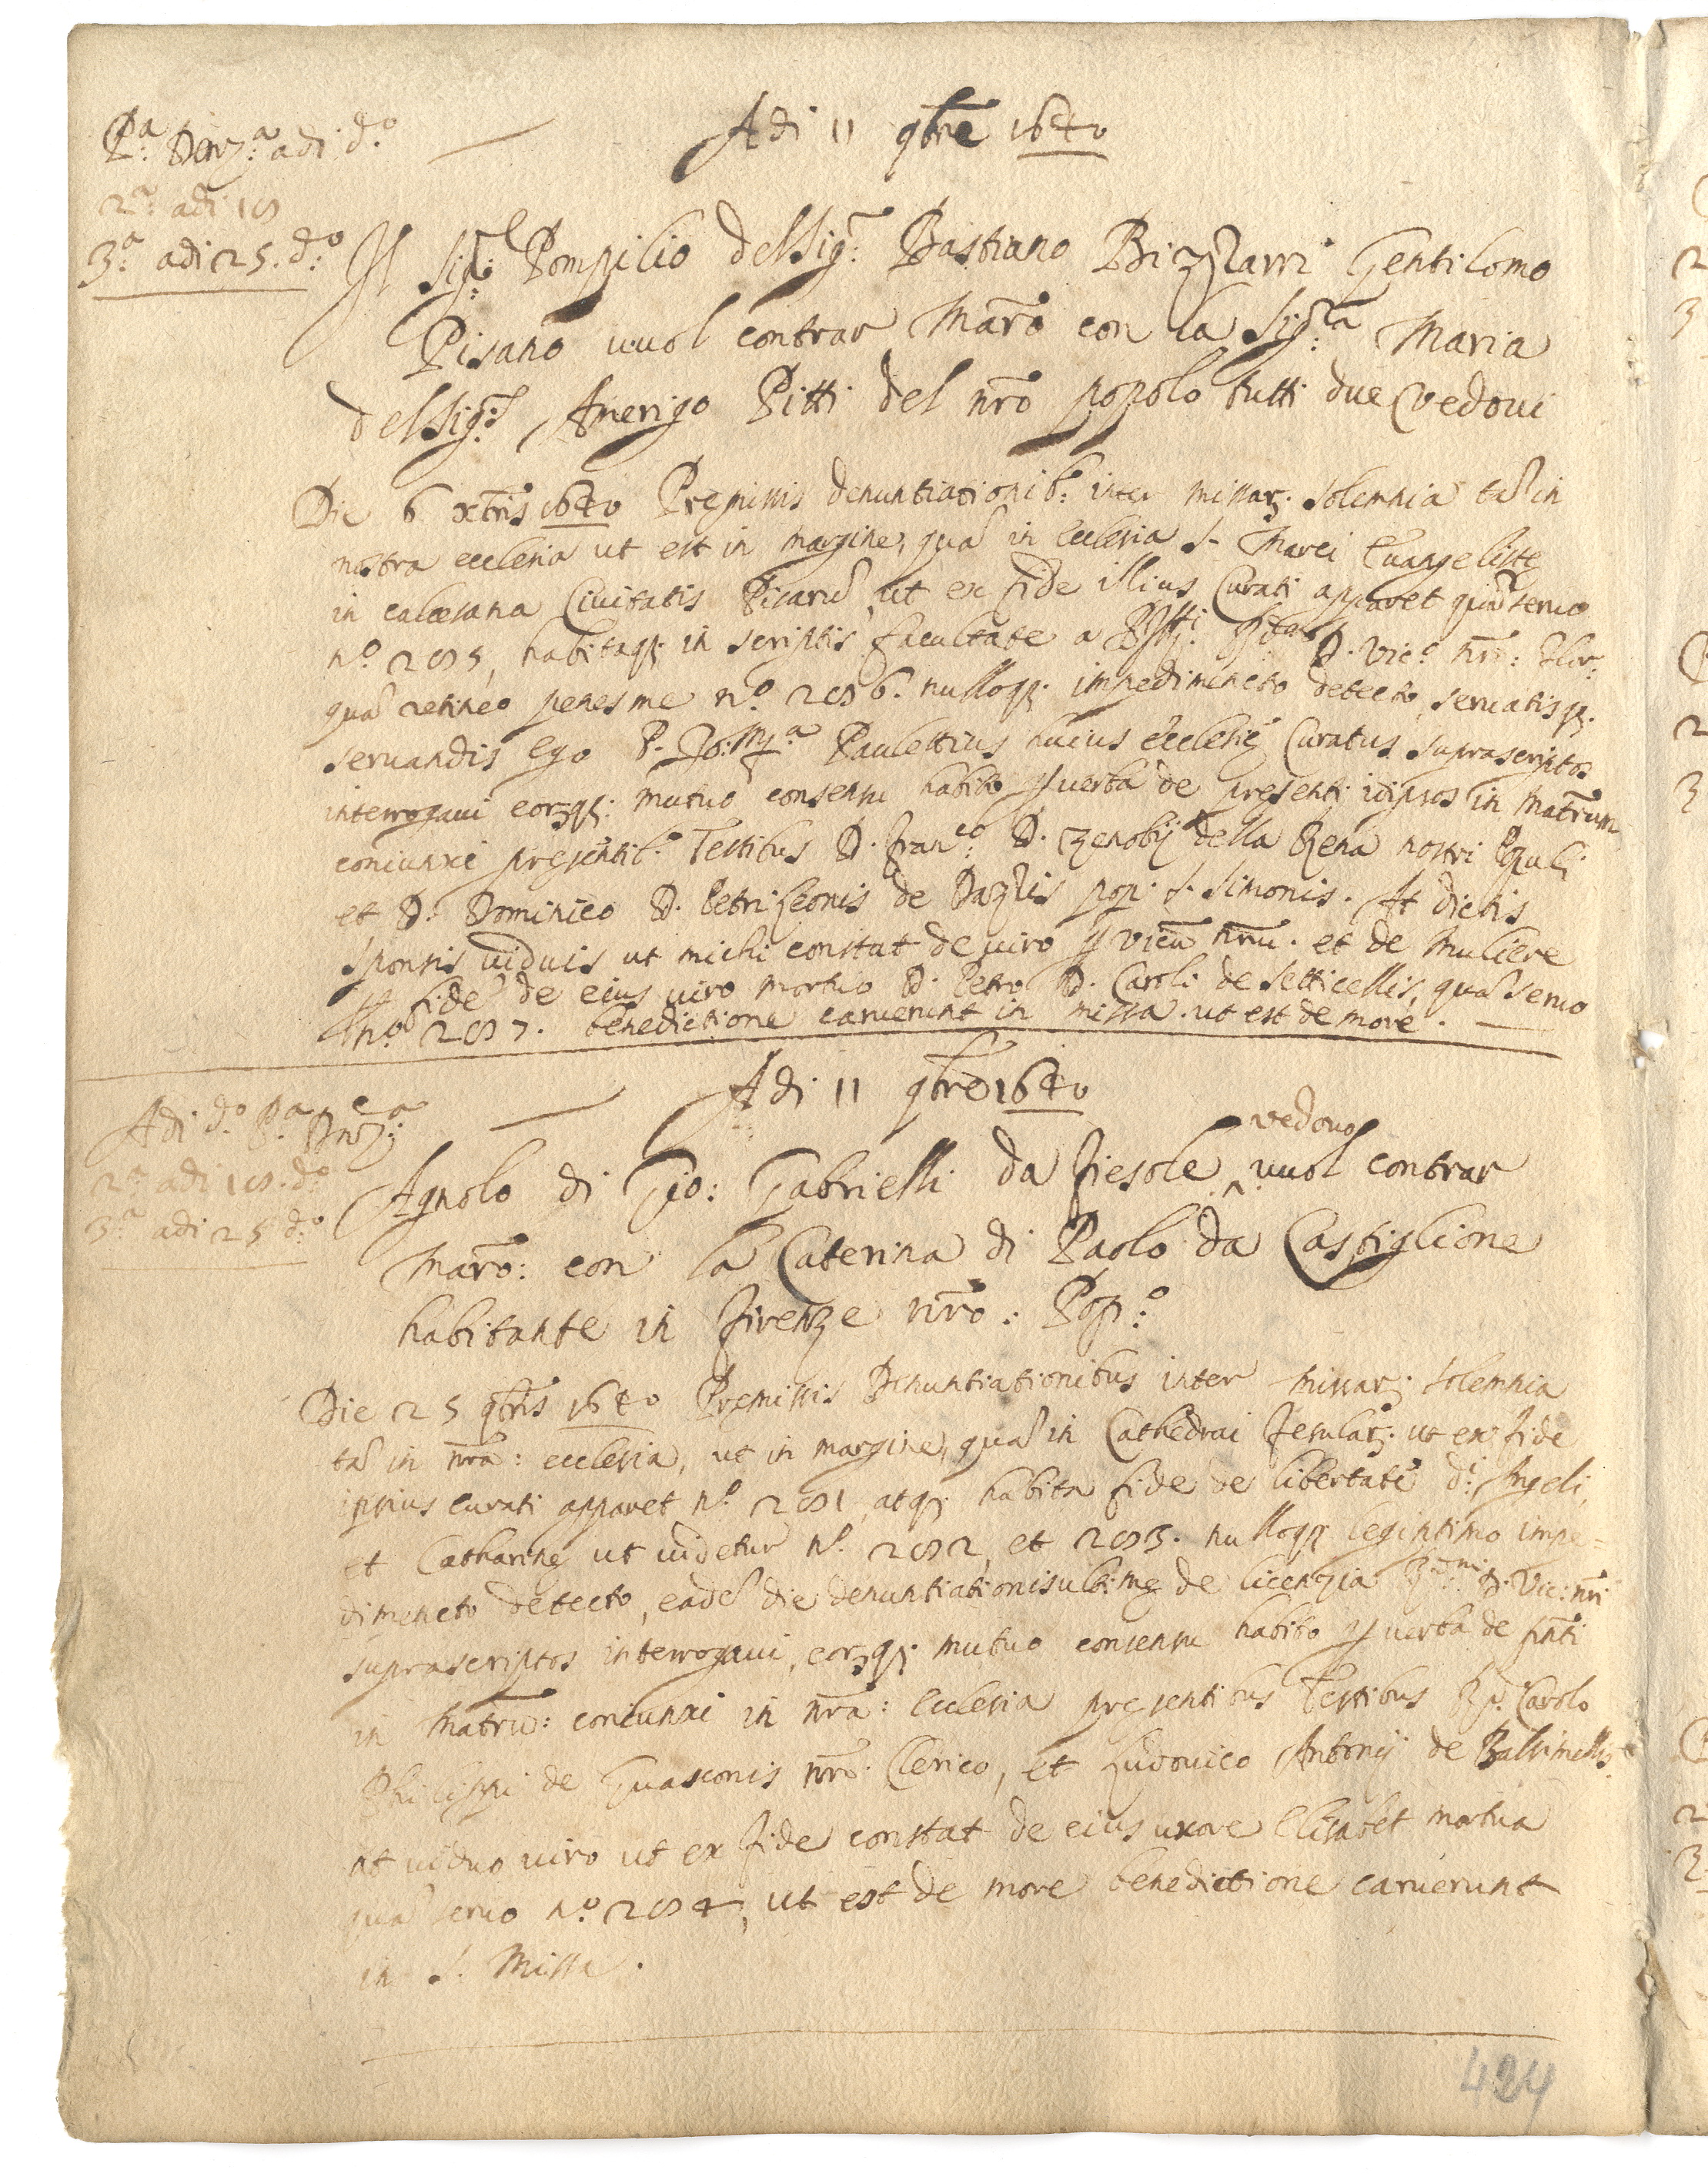 P.ª Denz.ª adi d.º
2.ª adi 18
3.ª adi 25. d.º
Adi 11 9bre 1640
Il Sig.r Pompilio del Sig.r Bastiano Bizzarri Gentilomo
Pisano vuol contrar Mar̃o con la Sig.ra Maria
del Sig.r Amerigo Pitti del nr̃o popolo tutti due Vedoui
Die 6 xbris 1640 Premissis denuntiationib: inter missar. solemnia tā in
nostra ecclesia ut est in margine, quā in ecclesia S. Marci Euangeliste
in calcesana Ciuitatis Pisarū, ut ex fide illius Curati apparet quā seruo
n.º 285, habitaq. in scriptis facultate a D. Vic.º nr̃o: Flor:
quā retineo penes me n.º 286. nulloq. impedimeneto detecto, seruatisq.
seruandis Ego P. Jo: M.ª Paulettius huius ecclesie Curatus suprascriptos
interrogaui eorq. mutuo consensu habito p uerba de presenti idipsos in Matrim̃
coniunxi presentib.º Testibus D. Fran.co D. Zenobij della Rena nostri Ppuli
et D. Dominico D. Petri Leonis de Dazzis pop. S. Simonis. At dictis
sponsis uiduis ut michi constat de uiro p vicū nr̃u. et de muliere
p fidē de eius uiro mortuo D. Petro D. Caroli de Setticellis, quā seruo
n.º 287. benedictione caruerunt in missa. ut est de more.
Adi d.º P.ª Denz.ª
2.ª adi 18. d.º
3.ª adi 25 d.º
Adi 11 9bre 1640
vedouo
Agnolo di Gio: Gabrielli da Fiesole ^ vuol contrar
Mar̃o: con la Caterina di Paolo da Castiglione
habitante in Firenze nr̃o: Pop:º
Die 25 9bris 1640 Premissis Denuntiationibus inter missar. solemnia
tā in nr̃a: ecclesia, ut in margine, quā in Cathedrai Fesular. ut ex fide
ipsius curati apparet n.º 281, atq. habita fide de libertate d.i Angeli,
et Catharine ut uidetur n.º 282, et 283. nulloq. legintimo impe=
dimeneto detecto, eadē die denuntiationis ultime de licenzia R.mi D. Vic: nr̃i
suprascriptos interrogaui, eorq. mutuo consensu habito p uerba de pñti
in Matrū: coniunxi in nr̃a: Ecclesia presentibus Testibus R.º Carolo
Philippi de Guasconis nr̃o. Clerico, et Ludouico Antonij de Balsimellis.
at uiduo uiro ut ex fide constat de eius uxore Elisabet mortua
quā seruo n.º 284, ut est de more benedictione caruerunt
in S. Missa.
424